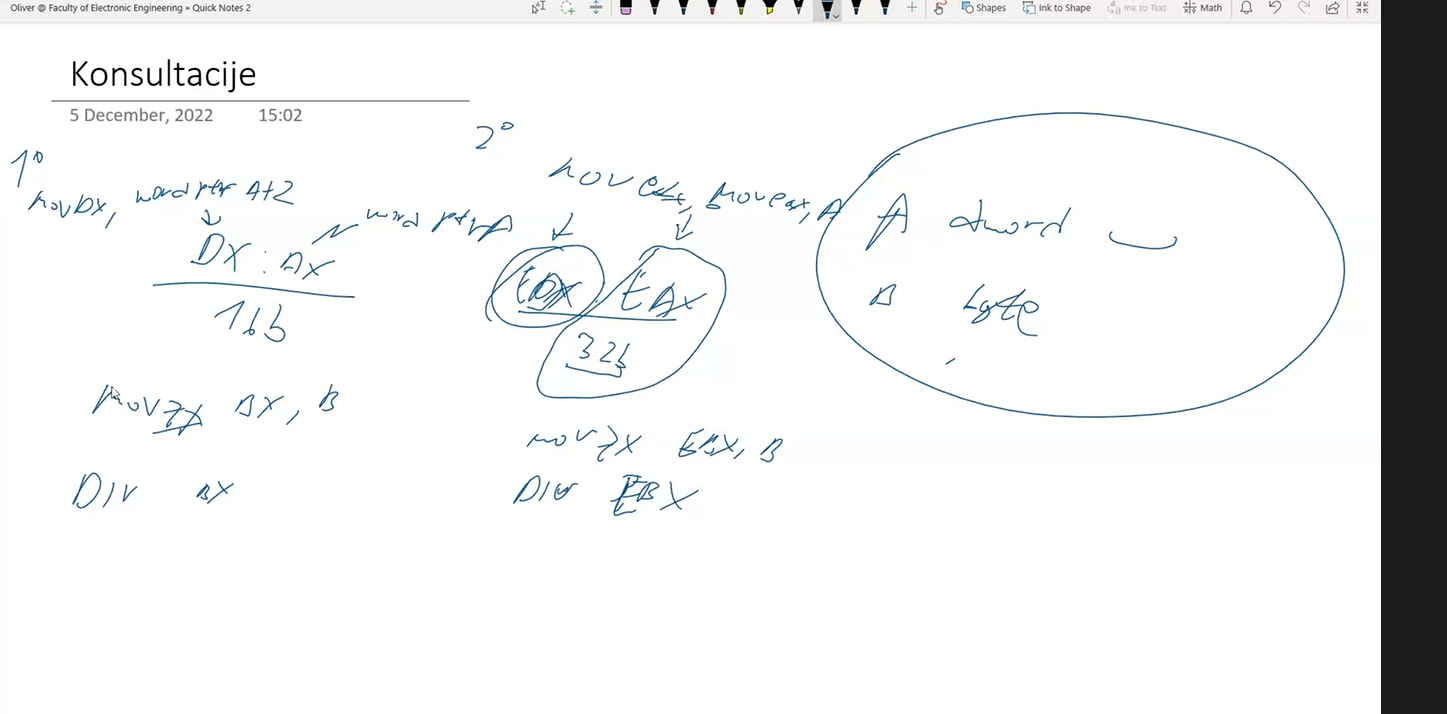 Oliver @ Faculty of Electronic Engineering » Quick Notes 2
Shapes Ink to Shape Ink to Text Math
Konsultacije
5 December, 2022 15:02
1°
mov DX, word ptr A+2
word ptr A
DX : AX
16b
movzx BX, B
DIV BX
2°
mov edx, 0 mov eax, A
EDX : EAX
32b
movzx EBX, B
DIV EBX
A dword
B byte